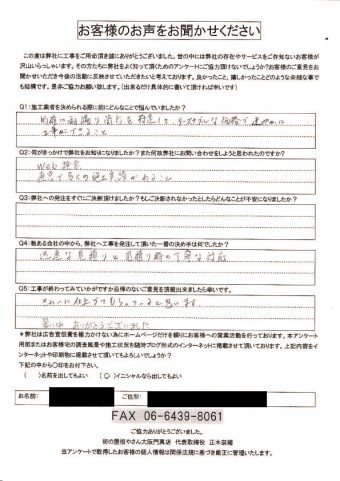 お客様のお声をお聞かせください
この度は弊社に工事をご用命頂き誠にありがとうございました。世の中には弊社の存在やサービスをご存知ないお客様が
沢山いらっしゃいます。その方たちに弊社をよく知って頂くためのアンケートにご協力頂けないでしょうか?お客様のご意見をお
聞かせいただき今後の活動に反映させていただきたいと考えております。良かったこと、嬉しかったことどのような些細な事で
も結構です。是非ご協力お願い致します。(出来るだけ具体的に書いて頂ければ幸いです)
Q1:施工業者を決められる際に前にどんなことで悩んでいましたか?
的確に雨漏り箇所を特定して、リーズナブルな価格で速やかに
工事ができること
Q2:何がきっかけで弊社をお知りになりましたか?また何故弊社にお問い合わせをしようと思われたのですか?
Web検索
豊富で多くの施工実績があること
Q3:弊社への発注をすぐにご決断頂けましたか?もしご決断されなかったとしたらどんなことが不安になりましたか?
Q4:数ある会社の中から、弊社へ工事を発注して頂いた一番の決め手は何でしたか?
迅速な見積りと見積り時の丁寧な対応
Q5:工事が終わってみていかがですか品得のないご意見を頂戴出来ましたら幸いです。
きれいに仕上げてもらっていると思います。
暑い中 ありがとうございました
*弊社は広告宣伝費を極力かけない為にホームページだけを頼りにお客様への営業活動を行っております。本アンケート
用紙またはお客様宅の調査風景や施工状況を随時ブログ形式のインターネットに掲載させて頂いております。上記内容をイ
ンターネットや印刷物に掲載させて頂いてもよろしいでしょうか?
下記の中から〇印をお付け下さい。
( )名前を出してもよい (〇)イニシャルなら出してもよい
お名前:
ご住所:
FAX 06-6439-8061
ご協力ありがとうございました。
街の屋根やさん大阪門真店 代表取締役 正木宗建
当アンケートで取得したお客様の個人情報は関係法規に基づき厳正に管理いたします。